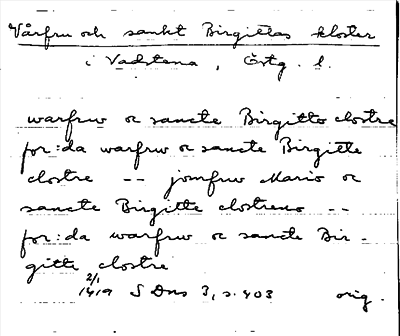 Vårfru och sankt Birgittas kloster
i Vadstena, Östg. l.
warfrw oc sancte Birgitto clostre
for:da warfrw oc sancte Birgitte
clostre -- jomfrw Mario oc
sancte Birgitte clostreno --
for:da warfrw oc sancte Bir-
gitte clostre
2/1
1419 SDns 3, s. 403 orig.